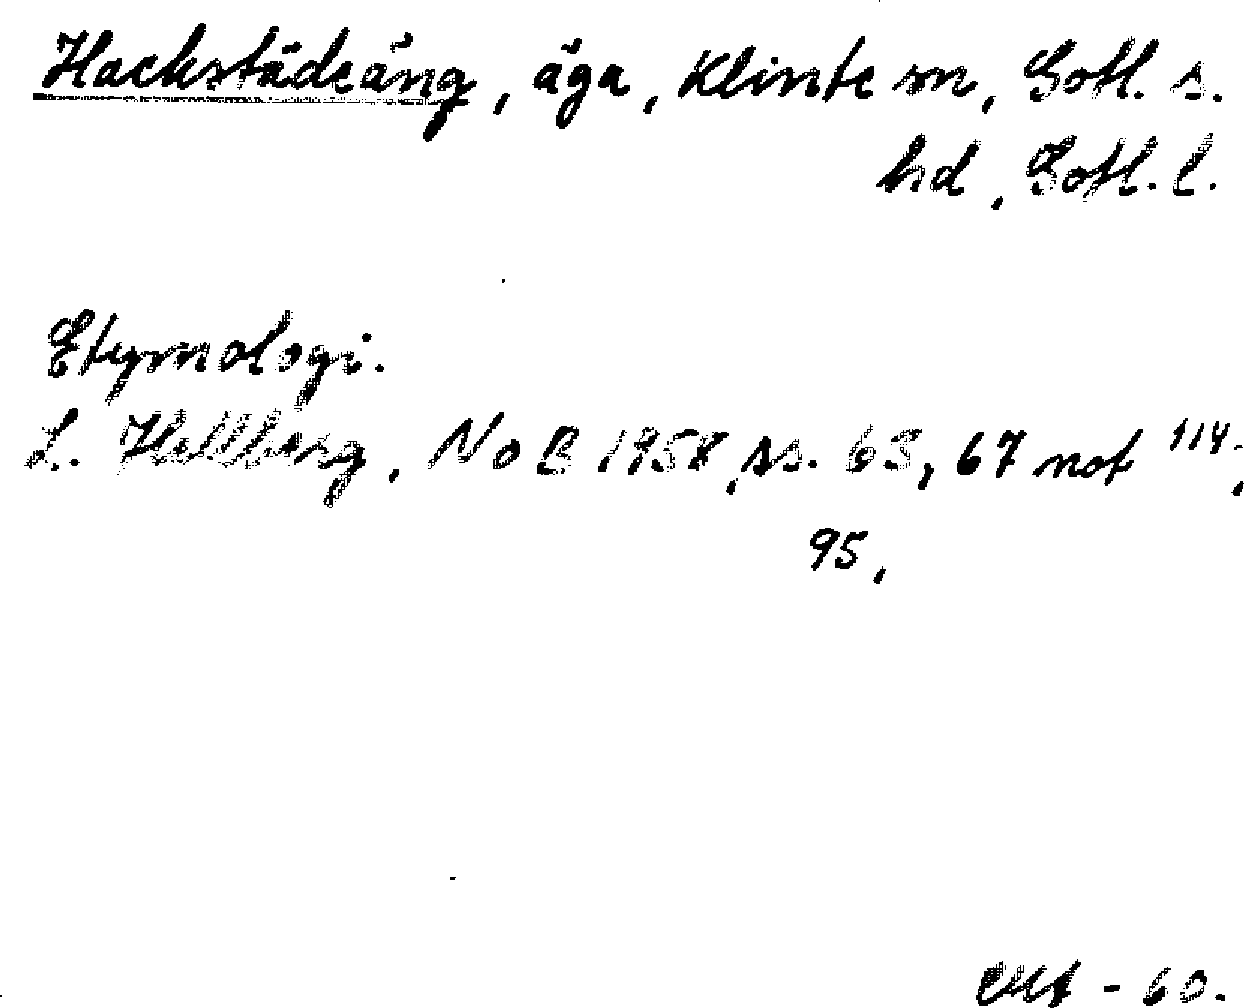 Hackstädeäng, äga, Klinte sn, Gotl. s.
hd, Gotl. l.
Etymologi.
L. Hellberg, NoB 1958, ss. 63, 67 not 114,
95,
- 60.